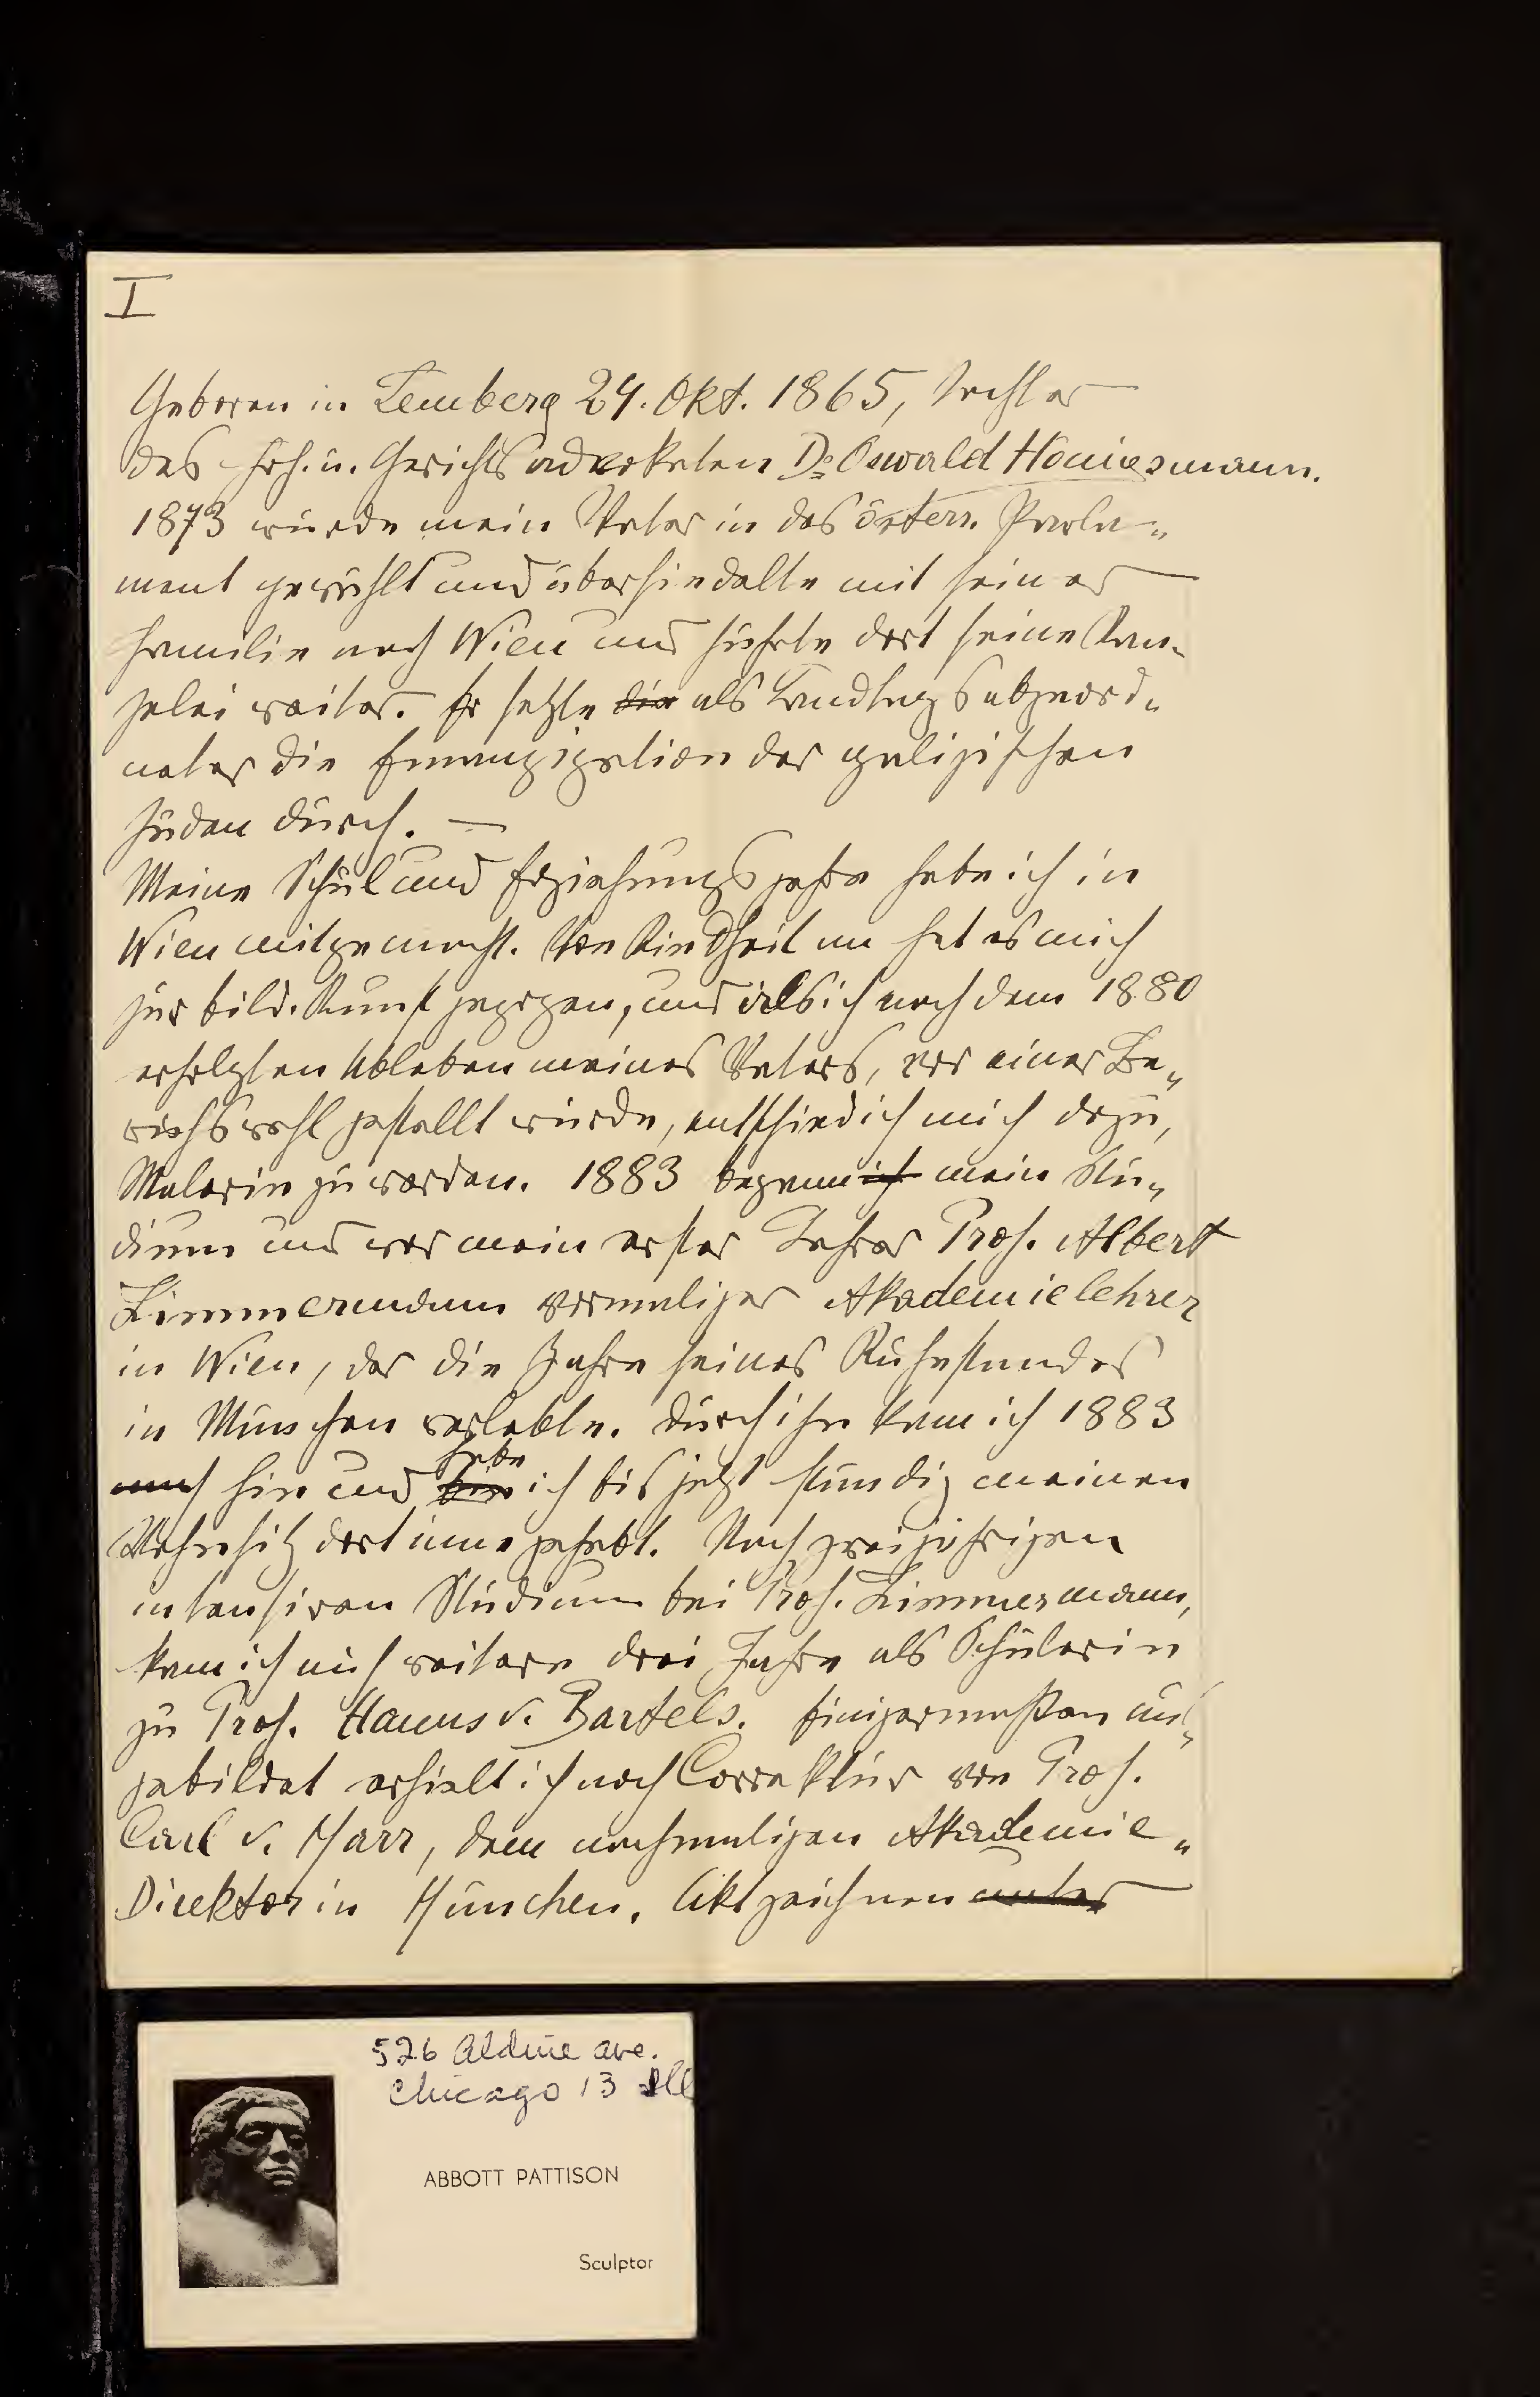 I
Geboren in Lemberg 24. Okt. 1865, Tochter
des Hof. u. Gerichtsadvokaten Dr Oswald Hönigsmann.
1873 wurde mein Vater in das österr. Parla-
ment gewählt und übersiedelte mit seiner
Familie nach Wien und führte dort seine Kan-
zlei weiter. Er setzte die als Landtagsabgeord-
neter die Emanzipation der galizischen
Juden durch. —
Meine Schul und Erziehungsjahre habe ich in
Wien mitgemacht. Von Kindheit an hat es mich
zur bild. Kunst gezogen, und als ich nach dem 1880
erfolgten Ableben meines Vaters, vor einer Be-
rufswahl gestellt wurde, entschied ich mich dazu,
Malerin zu werden. 1883 begann ich mein Stu-
dium und war mein erster Lehrer Prof. Albert
Zimmermann vormaliger Akademielehrer
in Wien, der die Jahre seines Ruhestandes
in München verlebte. Durch ihn kam ich 1883
auch hin und bin habe ich bis jetzt ständig meinen
Wohnsitz dort inne gehabt. Nach zweijährigen
intensiven Studium bei Prof. Zimmermann,
kam ich auf weitere drei Jahre als Schülerin
zu Prof. Hanns v. Bartels. Einigermaßen aus-
gebildet erhielt ich noch Correktur von Prof.
Carl v. Marr, dem nachmaligen Akademie-
Direktor in München. Aktzeichnen unter
526 Aldine ave.
Chicago 13 Ill
ABBOTT PATTISON
Sculptor